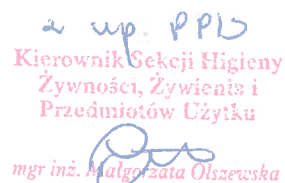 z up. PPIS
Kierownik Sekcji Higieny
Żywności, Żywienia i
Przedmiotów Użytku
mgr inż. Małgorzata Olszewska